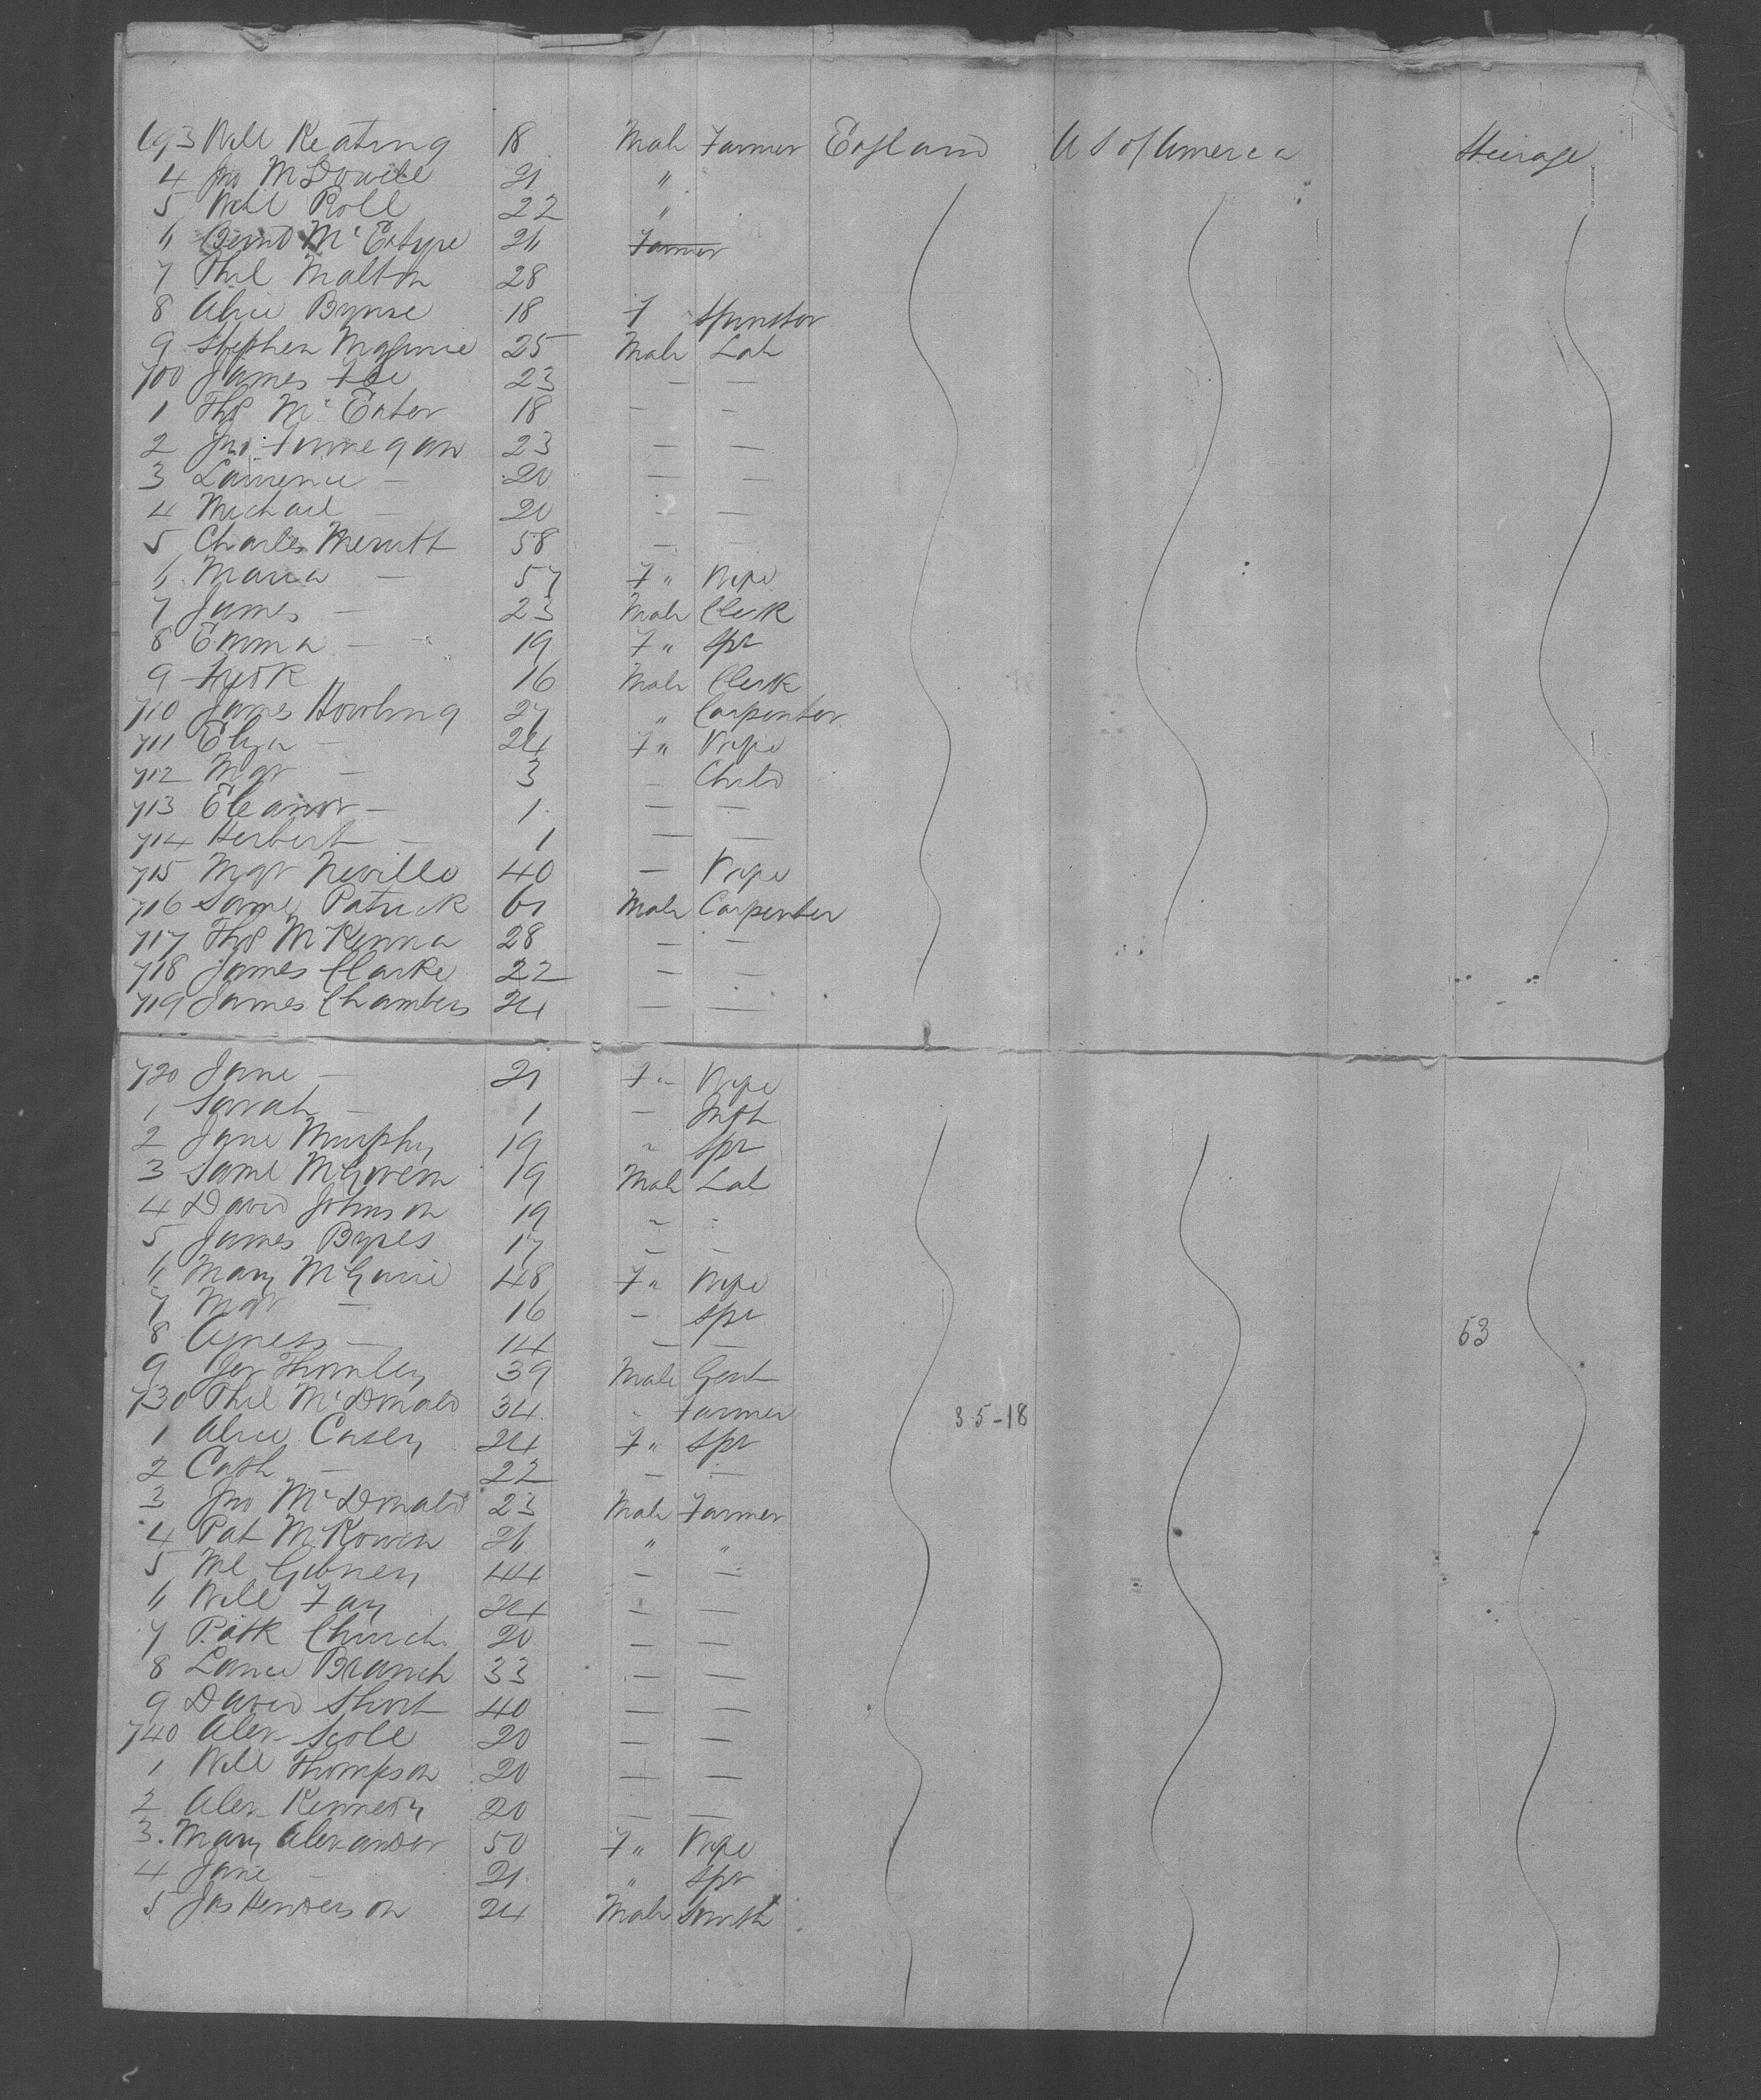 693 Will Keating 18 Male Farmer England U S of America Steerage
4 Jno McDowell 21 "
5 Will Roll 22 "
6 Bernd McEntyre 26 Farmer
7 Phil Malton 28
8 Alice Byrne 18 F Spinster
9 Stephen Maguire 25 Male Lab
700 James Fee 23 — —
1 Thos McEnter 18 — —
2 Jno Finnegan 23 — —
3 Lawrence — 20 — —
4 Michael — 20 — —
5 Charles Merritt 58 — —
6 Maria — 57 F " Wife
7 James — 23 Male Clerk
8 Emma — 19 F " Spr
9 Fredk 16 Male Clerk
710 James Howling 27 " Carpenter
711 Eliza — 24 F " Wife
712 Mgt — 3 — Child
713 Eleanor — 1 — —
714 Herbert — 1 — —
715 Mgt Neville 40 — Wife
716 Saml Patrick 61 Male Carpenter
717 Thos McKenna 28 — —
718 James Clarke 22 — —
719 James Chambers 24 — —
720 Jane — 21 F " Wife
1 Sarah — 1 — Inft
2 Jane Murphy 19 " Spr
3 Saml McGivern 19 Male Lab
4 David Johnson 19 " "
5 James Byres 17 — —
6 Mary McGuire 48 F " Wife
7 Mgt — 16 — Spr
8 Agness — 14 — —
53
9 Thornley 39 Male Gent
730 Phil McDonald 34 " Farmer
35-18
1 Alice Casey 24 F " Spr
2 Cath — 22 — —
3 Jno McDonald 23 Male Farmer
4 Pat McKowen 26 " "
5 Ml Gibney 44 — —
6 Will Fay 24 — —
7 Patk Church 20 — —
8 Lance Branch 33 — —
9 David Short 40 — —
740 Alex Scott 20 — —
1 Will Thompson 20 — —
2 Alex Kennedy 20 — —
3. Mary Alexander 50 F " Wife
4 Jane — 21 " Spr
5 Jas Henderson 24 Male Smith